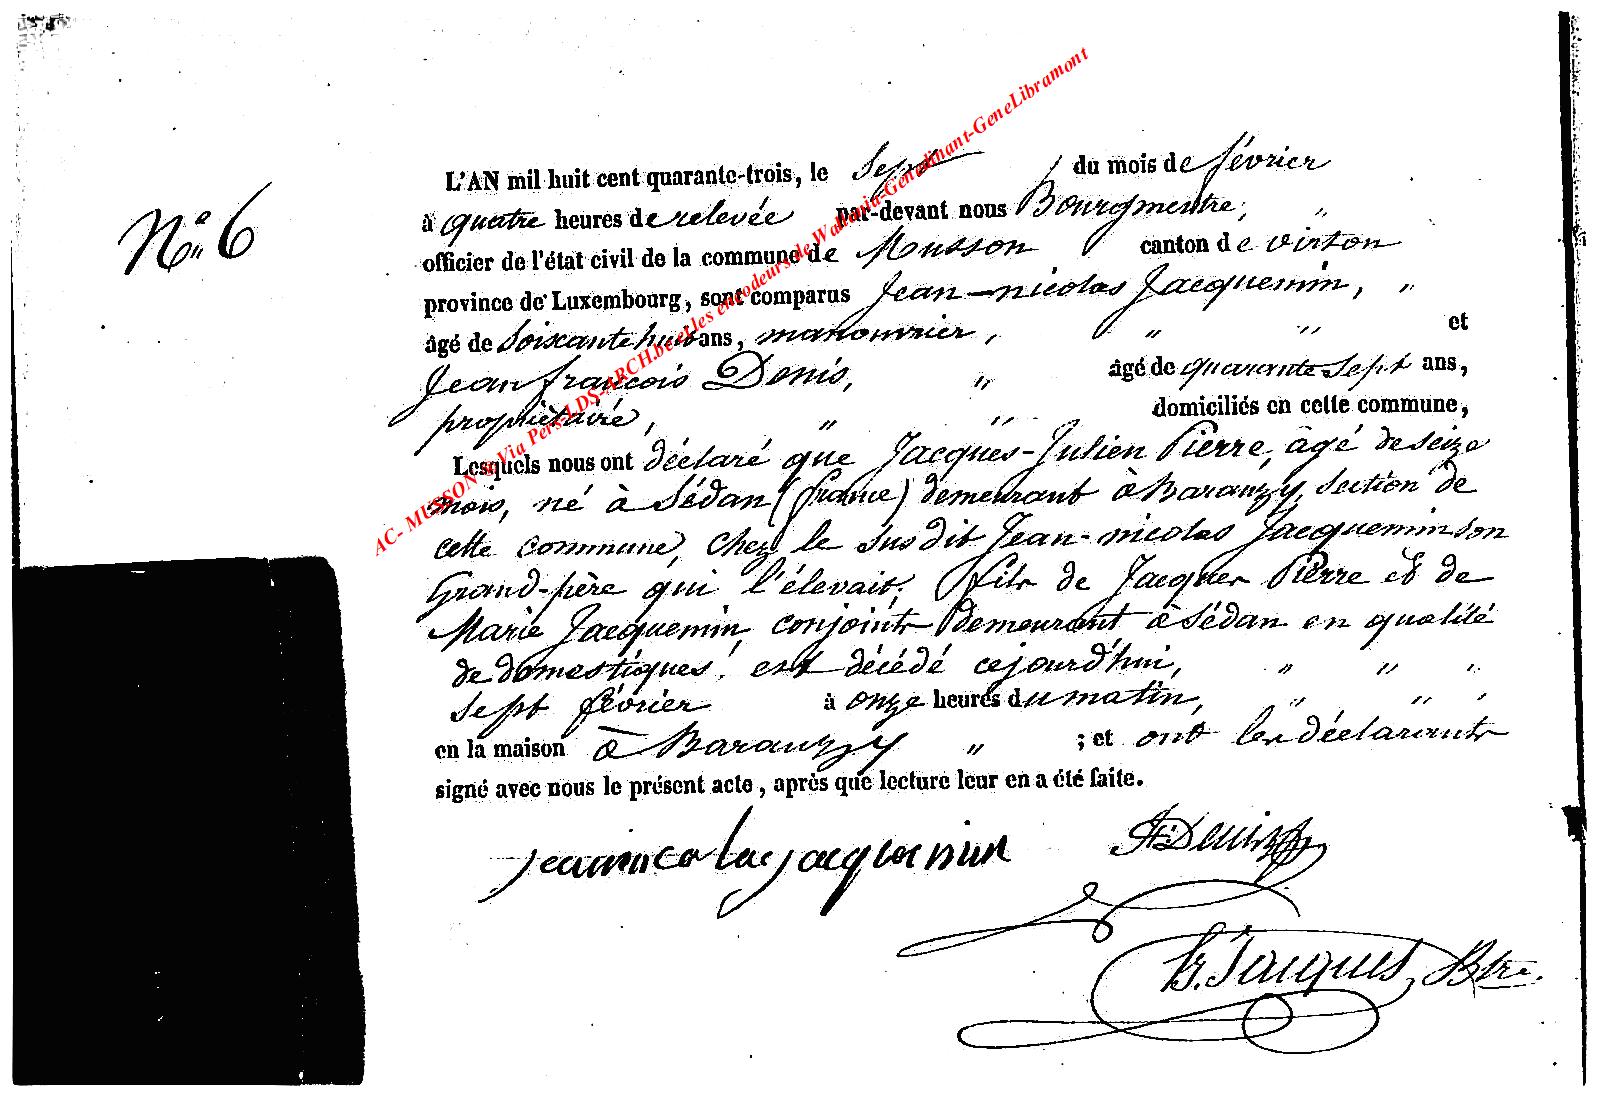 N° 6
L'AN mil huit cent quarante-trois, le Sept du mois de février
à quatre heures de relevée par-devant nous Bourgmestre, "
officier de l'état civil de la commune de Musson canton de virton
province de Luxembourg, sont comparus Jean-nicolas Jacquemin, "
âgé de Soixante huit ans, manouvrier, " " et
Jean françois Denis, " âgé de quarante Sept ans,
propriétaire, " " domiciliés en cette commune,
Lesquels nous ont déclaré que Jacques-Julien Pierre, âgé de seize
mois, né à Sédan (france) demeurant à Baranzy, section de
cette commune, chez le susdit Jean-nicolas Jacquemin son
Grand-père qui l'élevait, fils de Jacques Pierre et de
Marie Jacquemin, conjoints demeurant à Sédan en qualité
de domestiques, est décédé cejourd'hui, " " "
sept février à onze heures du matin, " " "
en la maison à Baranzy " ; et ont les déclarants
signé avec nous le présent acte, après que lecture leur en a été faite.
jeannicolas jacquemin
Jacques, Btre.
AC- MUSSON - Via Pers LDS-ARCH.be et les encodeurs de Wallonia-GeneDinant-GeneLibramont